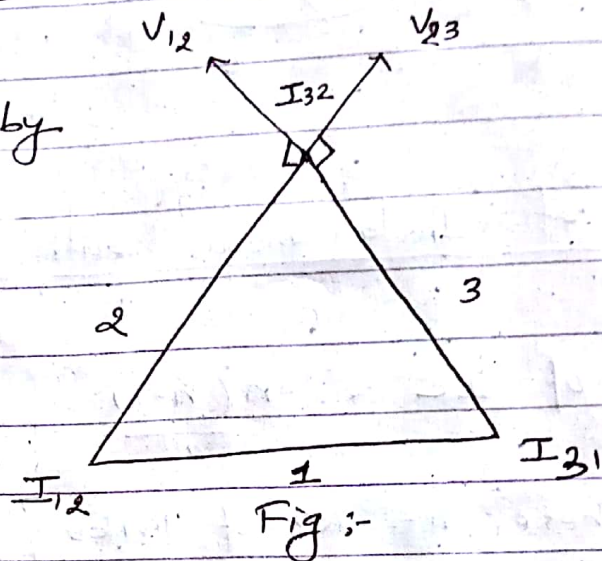 V₁₂ V₂₃
I₃₂
by
2 3
I₁₂ 1 I₃₁
Fig :-